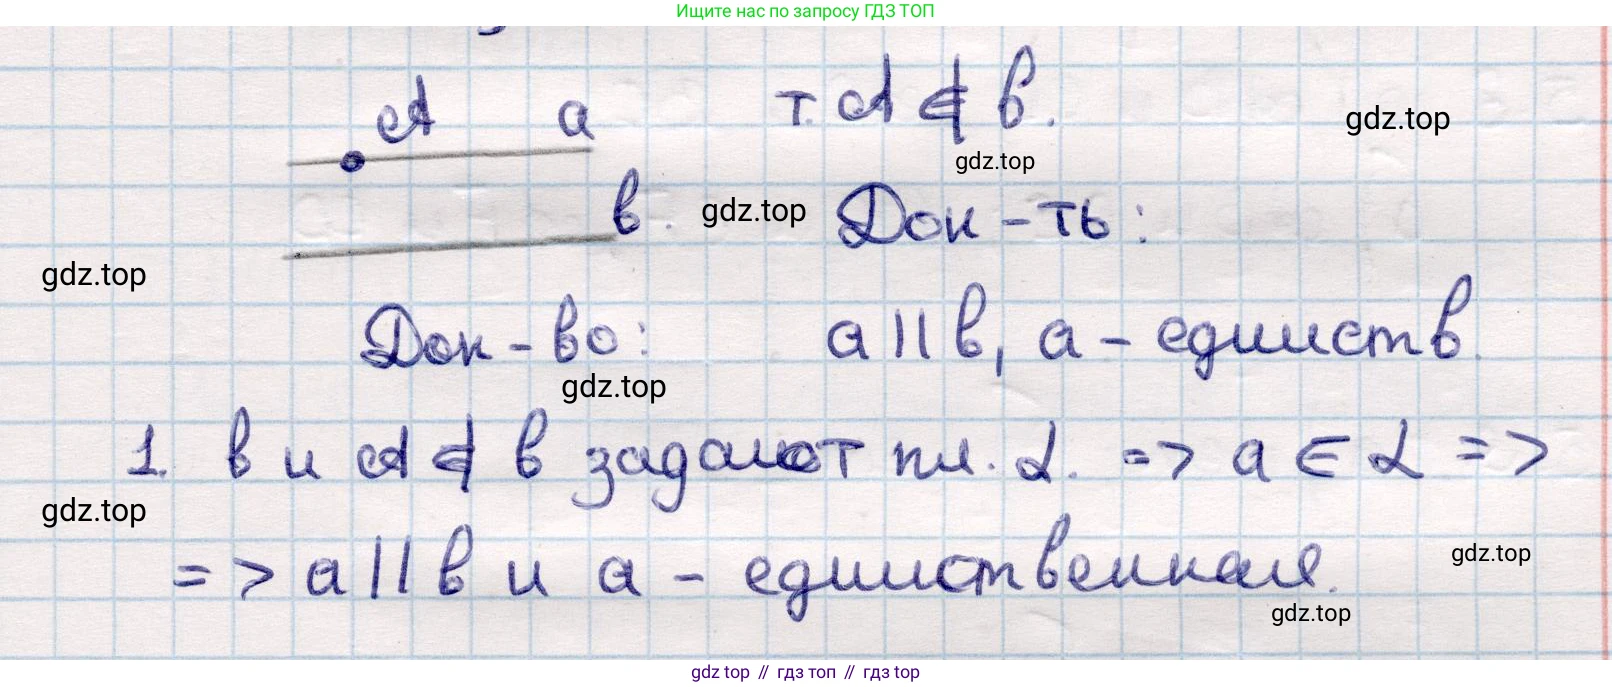 Ищите нас по запросу ГДЗ ТОП
A a т. A ∉ в.
gdz.top
gdz.top
в. gdz.top Док-ть:
gdz.top
Док-во: a || в, a - единств.
gdz.top
1. в и A ∉ в задают пл. α. => a ∈ α =>
gdz.top
=> a || в и a - единственная.
gdz.top
gdz.top
gdz top // гдз топ // гдз top